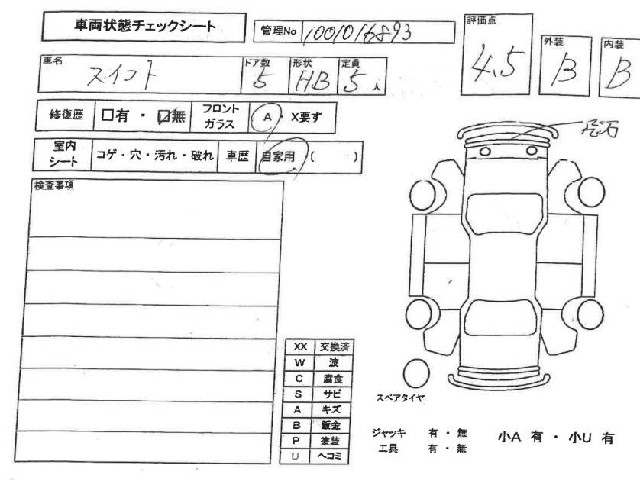 車両状態チェックシート
管理No 1001016893
評価点 4.5
外装 B
内装 B
車名 スイフト
ドア数 5
形状 HB
定員 5人
修復歴 □有・☑無
フロントガラス A・X要す
室内シート コゲ・穴・汚れ・破れ
車歴 自家用 ( )
検査事項
飛石
XX 交換済
W 波
C 腐食
S サビ
A キズ
B 鈑金
P 塗装
U ヘコミ
スペアタイヤ
ジャッキ 有・無
工具 有・無
小A 有・小U 有